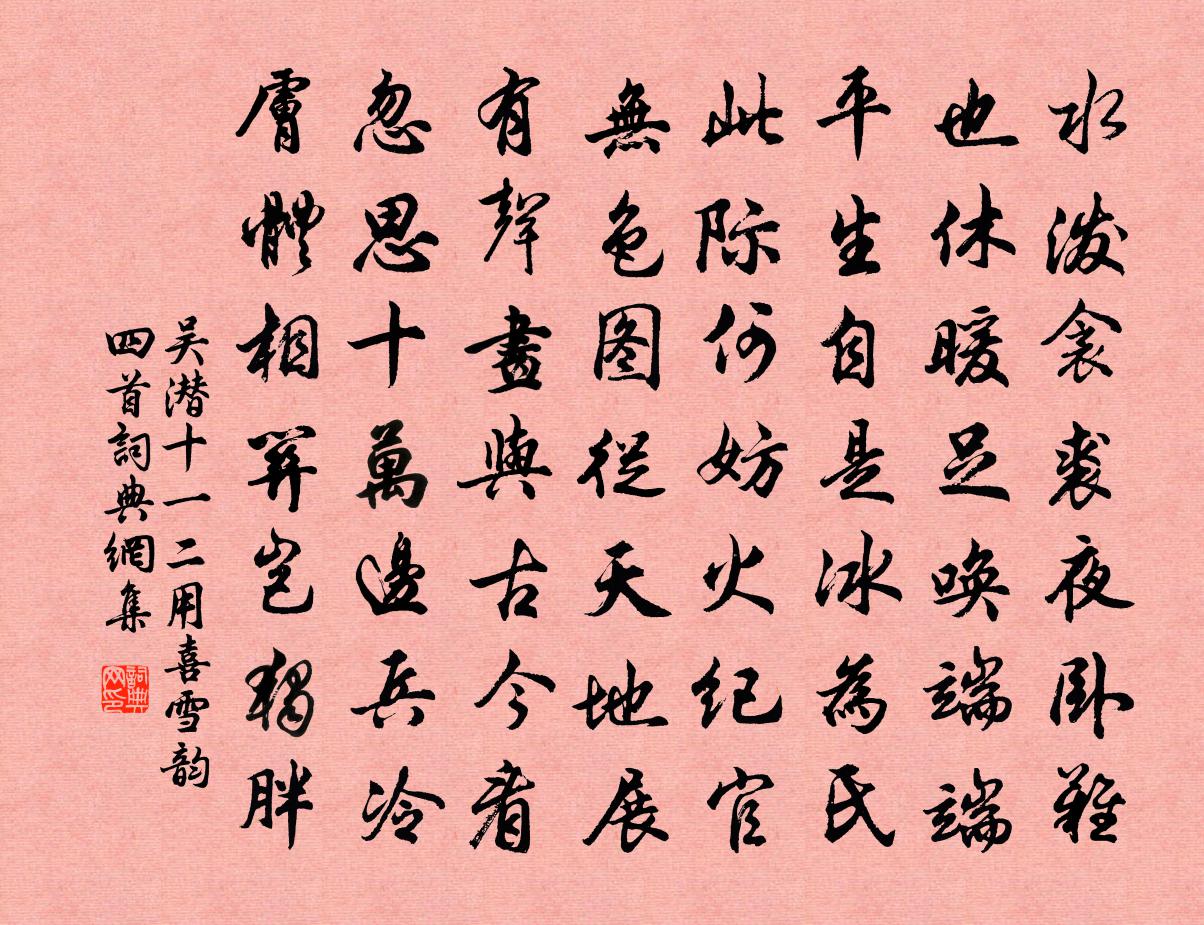 水泼衾裘夜卧難
也休暖足唤端端
平生自是冰為氏
此际何妨火纪官
無色图從天地展
有聲畫與古今看
忽思十萬邊兵冷
膚體相筭岂独胖
吴潜十一二用喜雪韵
四首詞典網集
詞典
网印